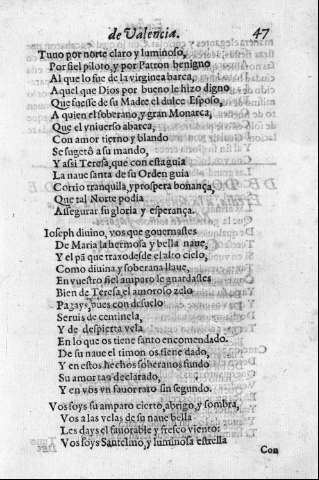 de Valencia. 47
Tuuo por norte claro y luminoso,
Por fiel piloto, y por Patron benigno
Al que lo fue de la virginea barca,
Aquel que Dios por bueno le hizo digno
Que fuesse de su Madre el dulce Esposo,
A quien el soberano, y gran Monarca,
Que el vniuerso abarca,
Con amor tierno y blando
Se sugetô a su mando,
Y assi Teresa, que con esta guia
La naue santa de su Orden guia
Corrio tranquila, y prospera bonança,
Que tal Norte podia
Assegurar su gloria y esperança.
Ioseph diuino, vos que gouernastes
De Maria la hermosa y bella naue,
Y el pã que traxo desde el alto cielo,
Como diuina y soberana llaue,
En vuestro fiel amparo le guardastes
Bien de Teresa, el amoroso zelo
Pagays, pues con desuelo
Seruis de centinela,
Y de despierta vela
En lo que os tiene santo encomendado.
De su naue el timon os tiene dado,
Y en estos hechos soberanos fundo
Su amor tan declarado,
Y en vos vn fauor rato sin segundo.
Vos soys su amparo cierto, abrigo, y sombra,
Vos a las velas de su naue bella
Les days el fauorable y fresco viento:
Vos soys Santelmo, y luminosa estrella
Con